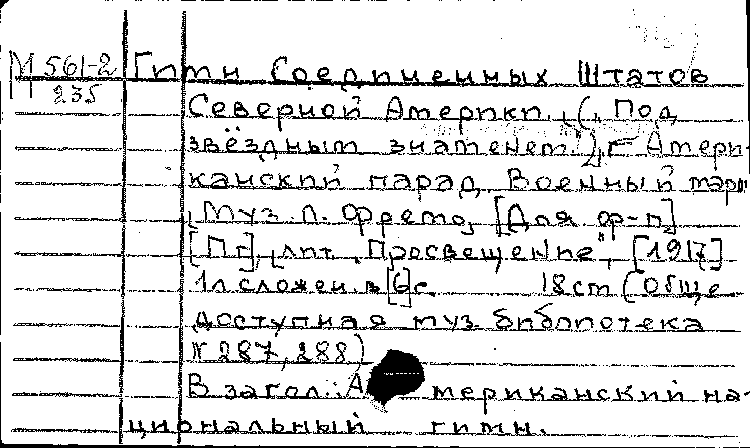 М 561-2 Гимн Соединенных Штатов
235
Северной Америки. („Под
звёздным знаменем.“), - Амери-
канский парад Военный марш
Муз. Л. Фремо, [Для ф-п]
[Пг], лит. „Просвещение“, [1917]
1л сложен. в [6] с. 18 cm (Обще
доступная муз библиотека
N 287, 288)
В загол.: Американский на-
циональный гимн.